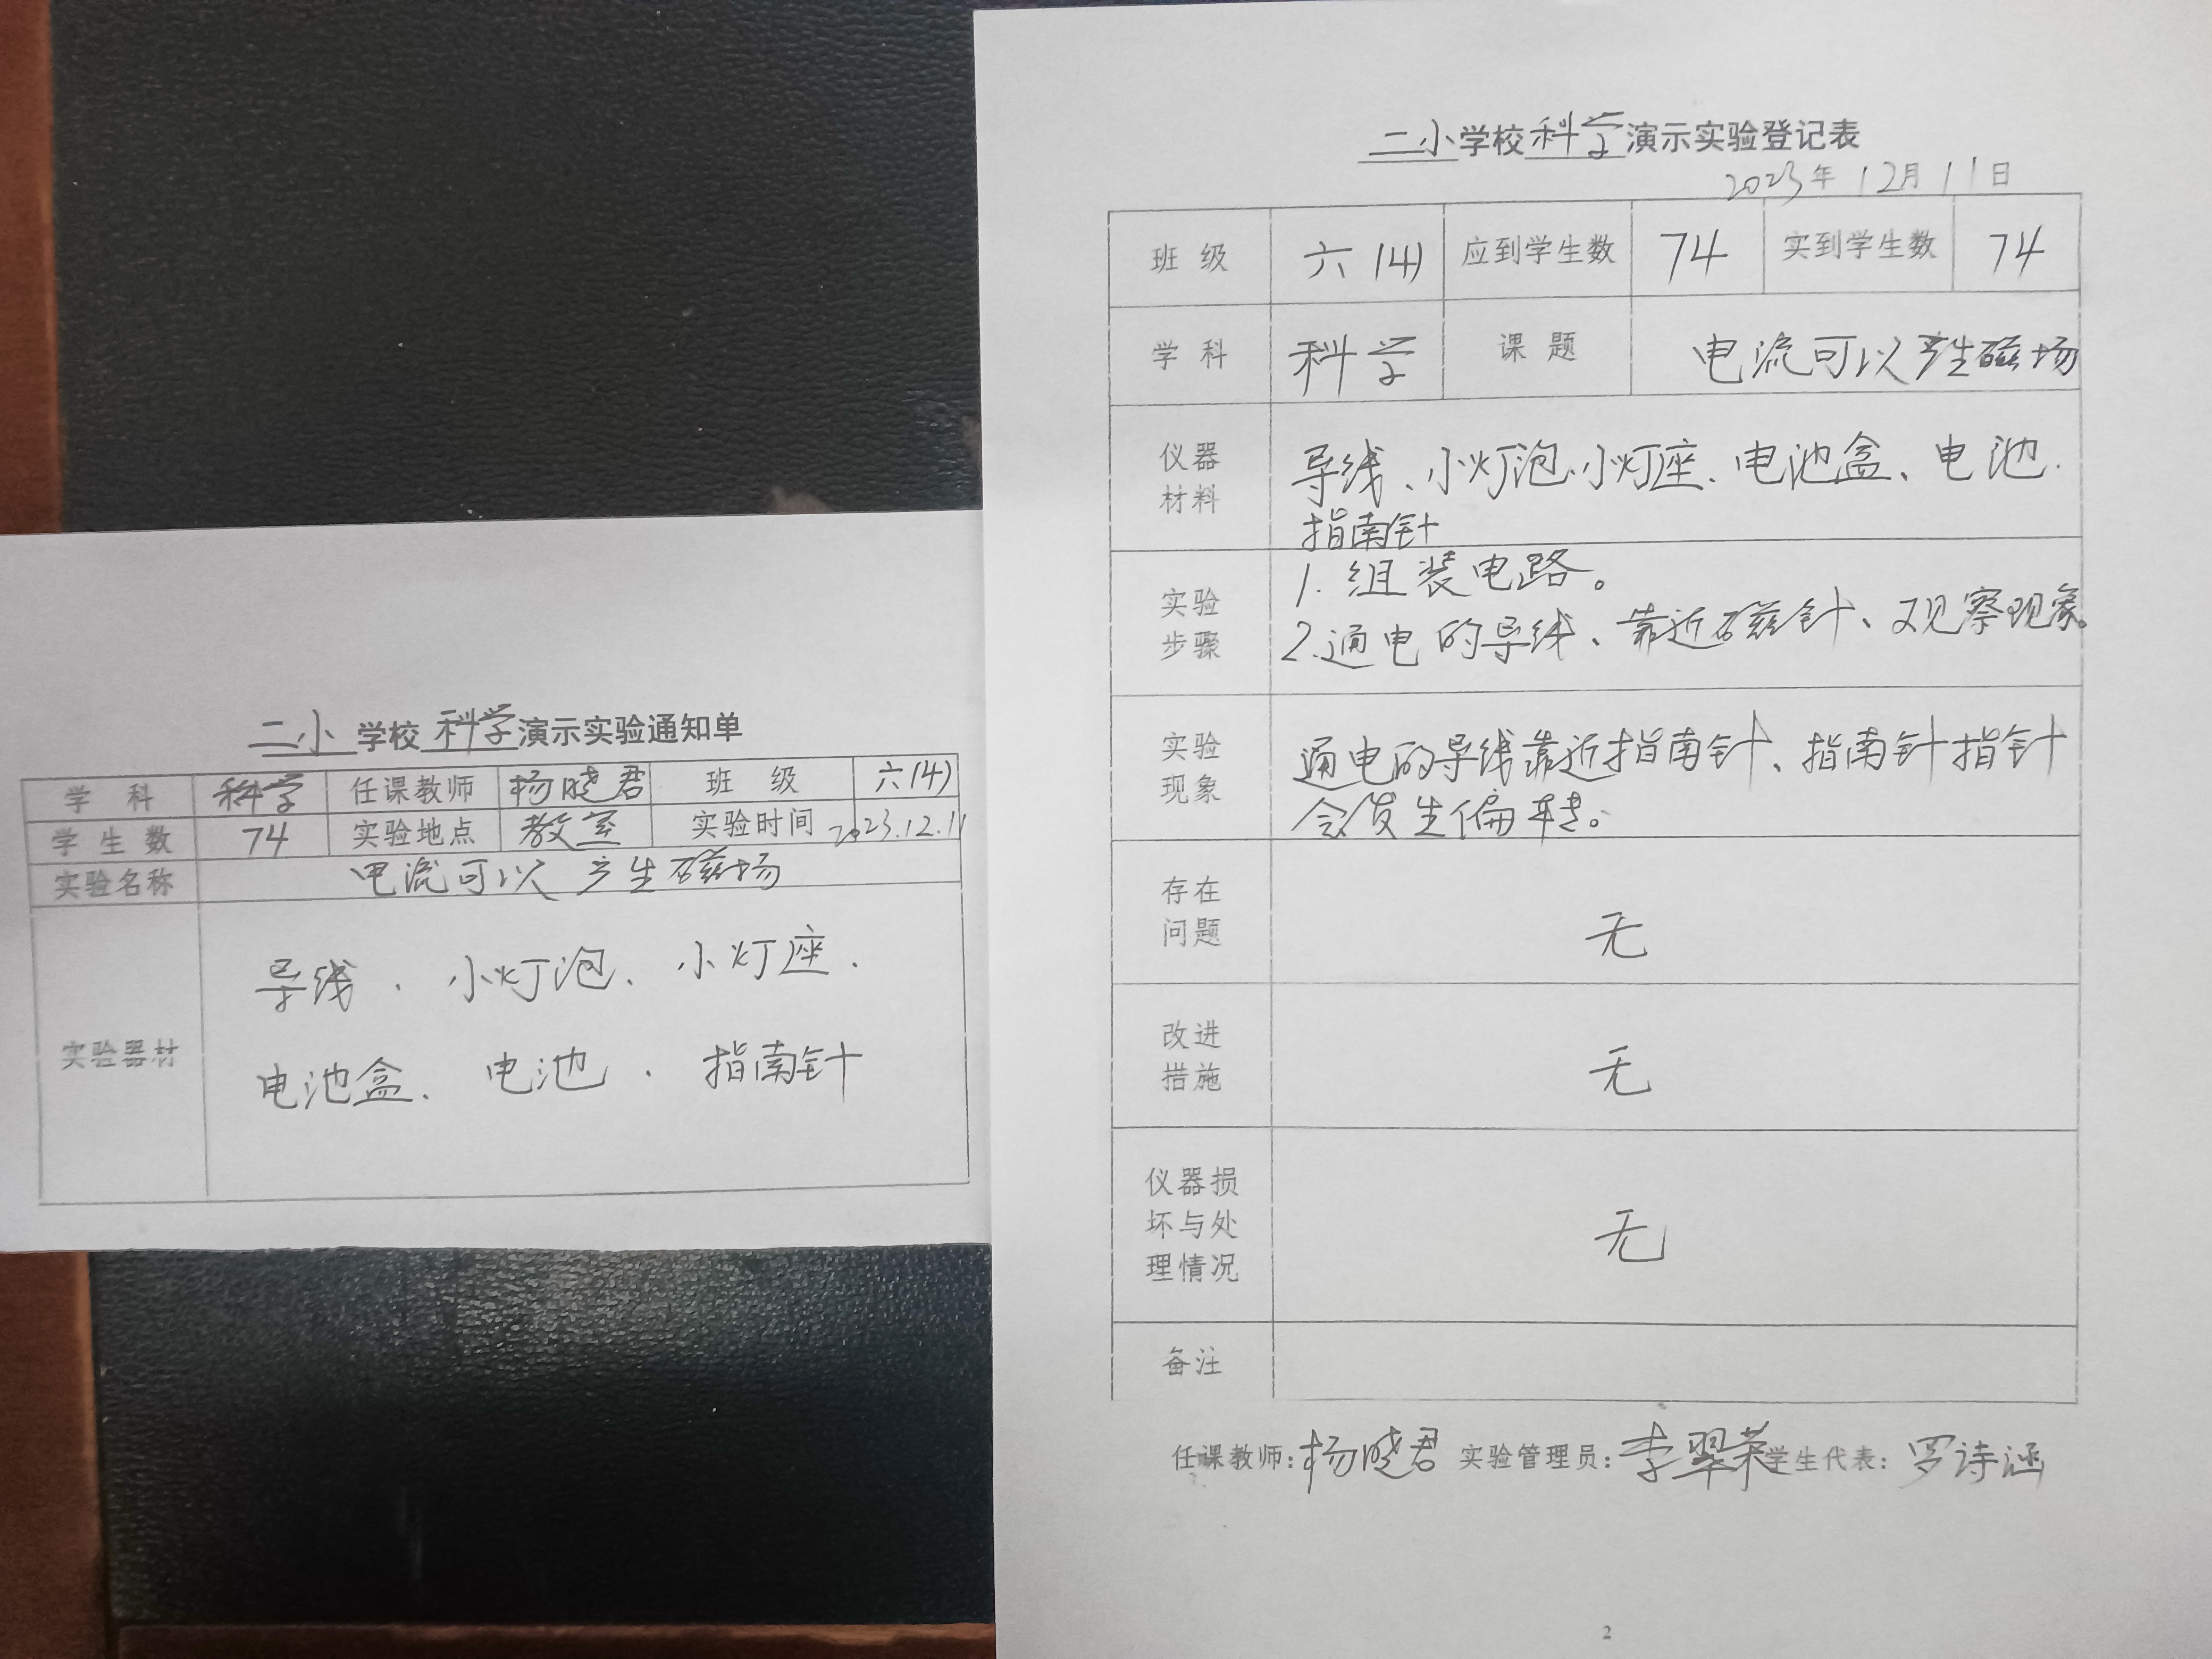 二小学校科学演示实验通知单
学科 科学 任课教师 杨晓君 班级 六(4)
学生数 74 实验地点 教室 实验时间 2023.12.11
实验名称 电流可以产生磁场
实验器材
导线、小灯泡、小灯座、
电池盒、电池、指南针
二小学校科学演示实验登记表
2023年12月11日
班级 六(4) 应到学生数 74 实到学生数 74
学科 科学 课题 电流可以产生磁场
仪器
材料
导线、小灯泡、小灯座、电池盒、电池、
指南针
实验
步骤
1.组装电路。
2.通电的导线、靠近磁针、观察现象。
实验
现象
通电的导线靠近指南针、指南针指针
会发生偏转。
存在
问题
无
改进
措施
无
仪器损
坏与处
理情况
无
备注
任课教师:杨晓君 实验管理员:李翠荣 学生代表:罗诗涵
2